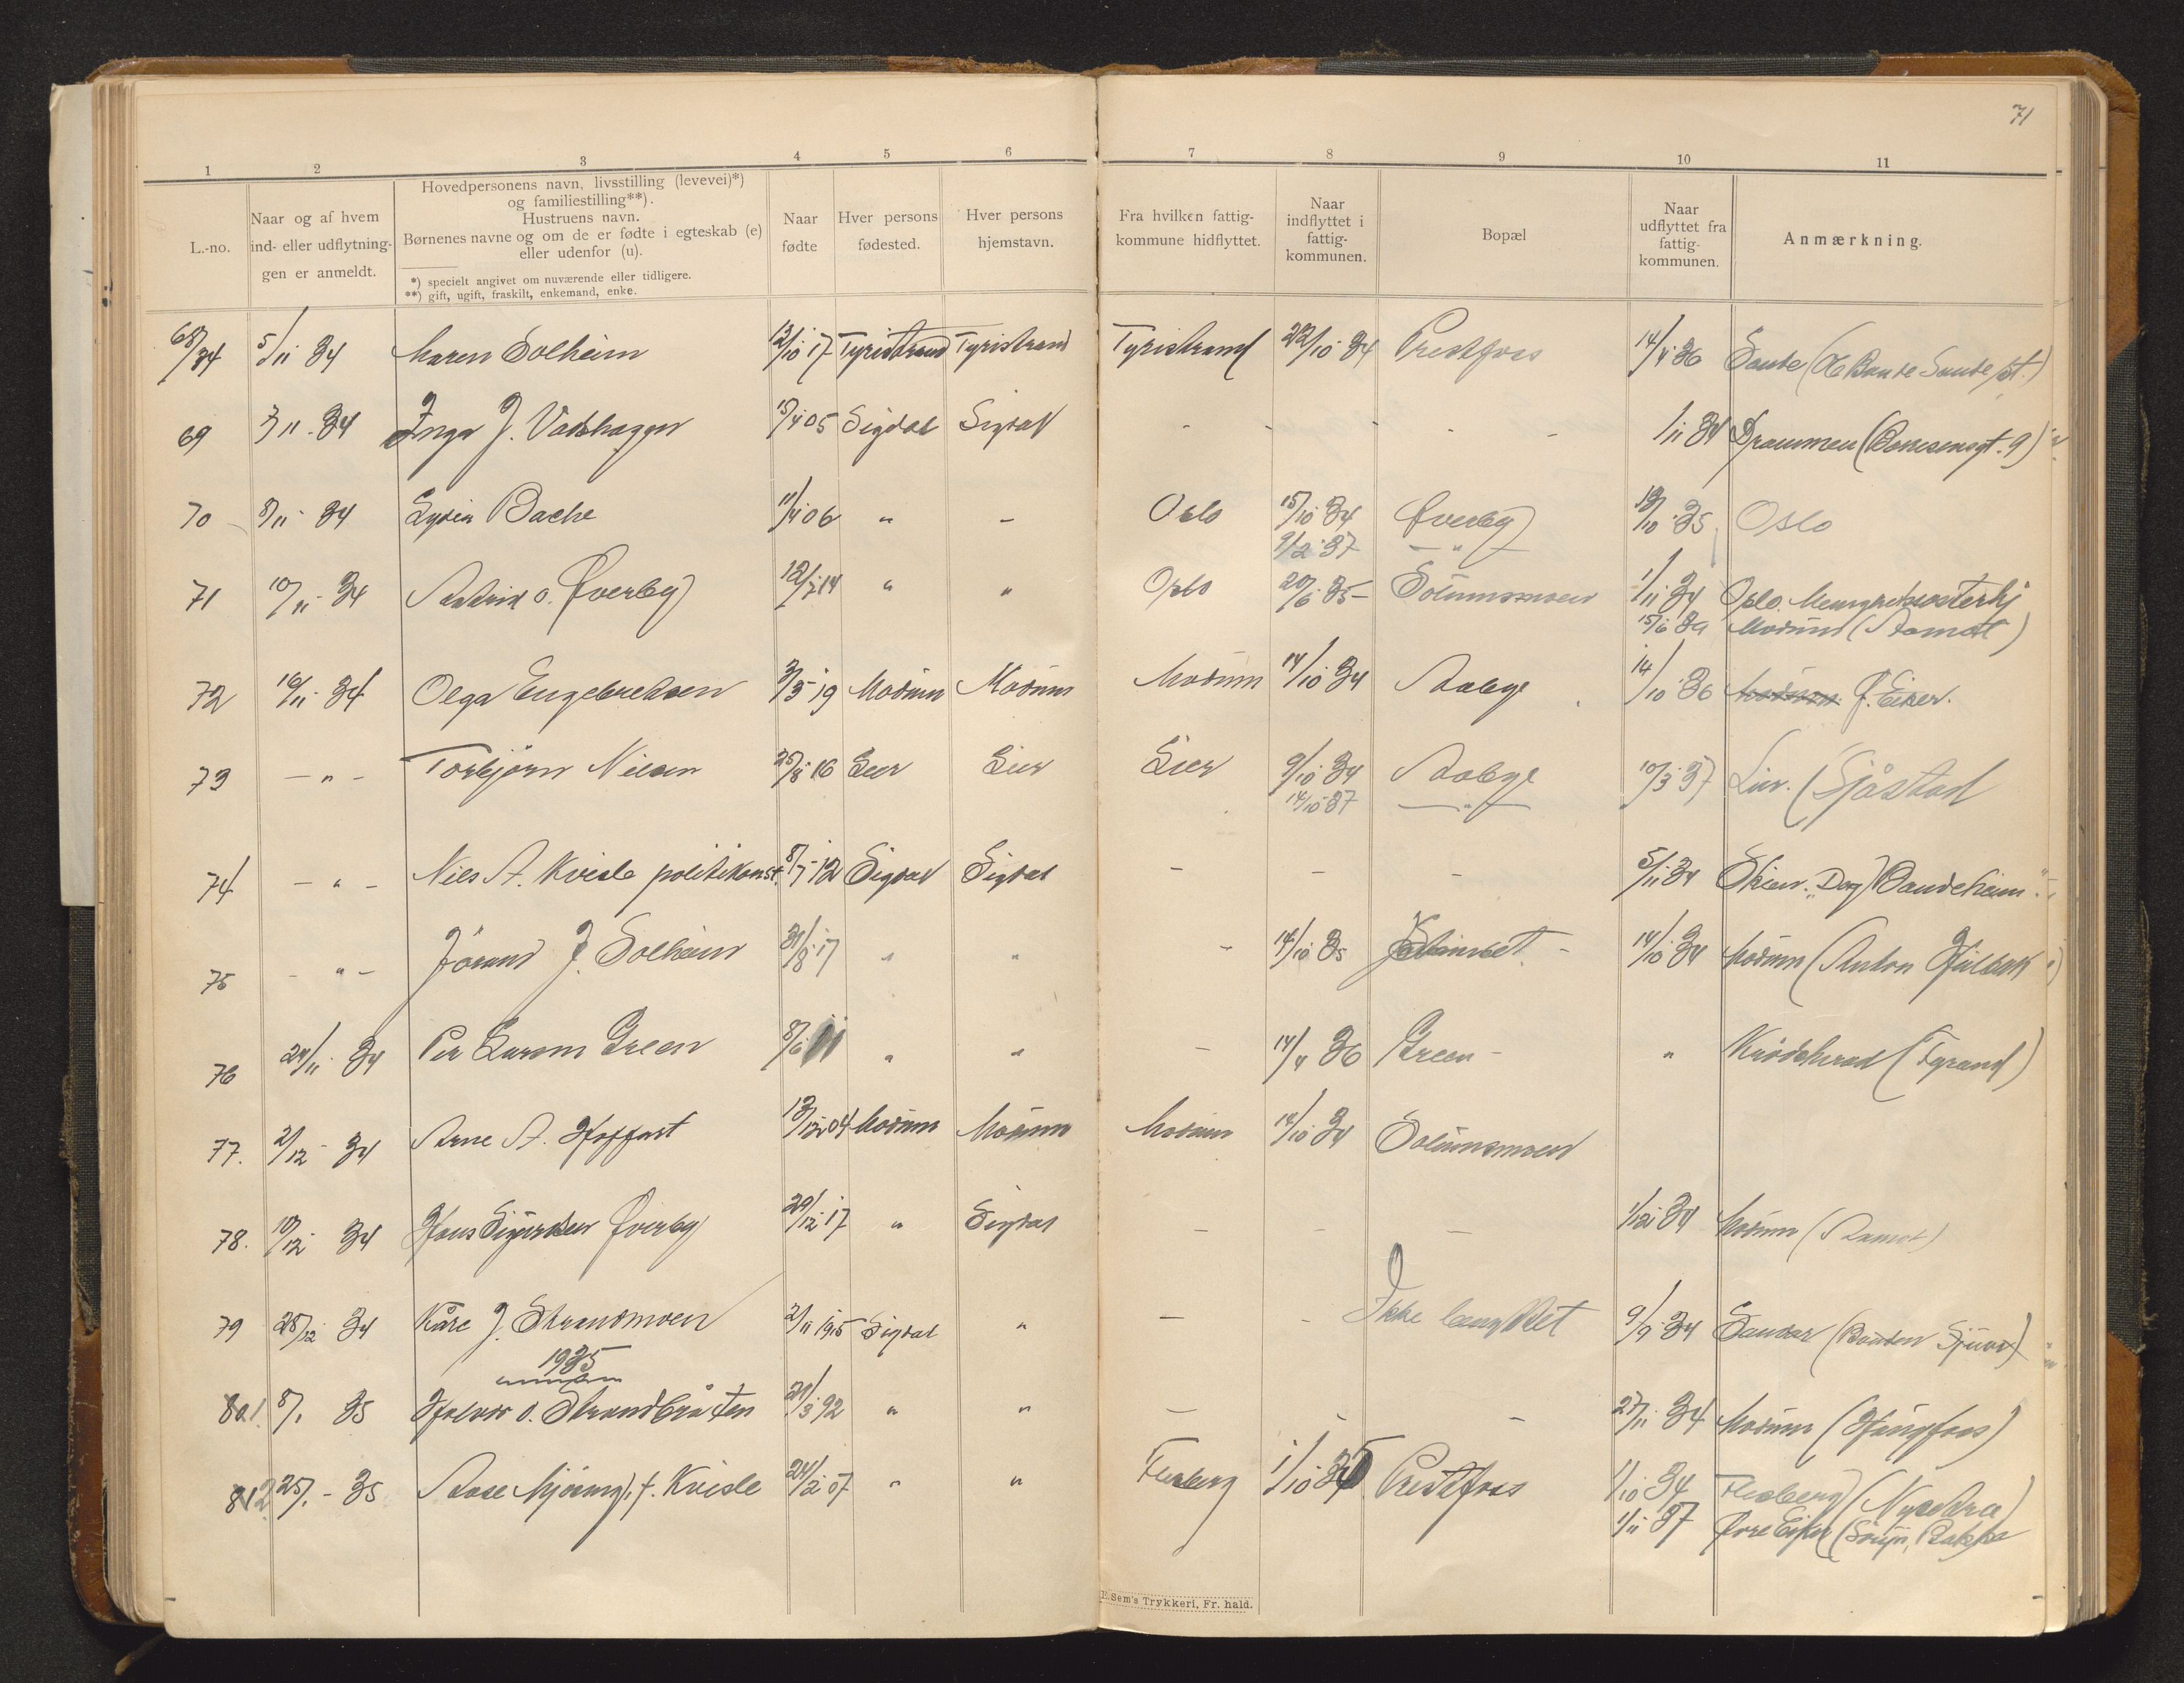 71
1 2 3 4 5 6 7 8 9 10 11
L.-no.
Naar og af hvem
ind- eller udflytning-
gen er anmeldt.
Hovedpersonens navn, livsstilling (levevei)*)
og familiestilling**).
Hustruens navn.
Børnenes navne og om de er fødte i egteskab (e)
eller udenfor (u).
*) specielt angivet om nuværende eller tidligere.
**) gift, ugift, fraskilt, enkemand, enke.
Naar
fødte
Hver persons
fødested.
Hver persons
hjemstavn.
Fra hvilken fattig-
kommune hidflyttet.
Naar
indflyttet i
fattig-
kommunen.
Bopæl
Naar
udflyttet fra
fattig-
kommunen.
Anmærkning.
68/34 5/11 34 Maren Solheim 12/10 17 Tyristrand Tyristrand Tyristrand 22/10 34 Prestfoss 14/4 36 Sande
69 7/11 - 34 Inga J. Vadshagen 15/4 05 Sigdal Sigdal - - - - 1/11 34 Drammen
70 8/11 - 34 Lydia Bache 11/4 06 " - Oslo 15/10 34 Øverby 18/10 35 Oslo
9/2 37 - " -
71 10/11 - 34 Astrid O. Øverby 12/7 14 " " Oslo 20/6 35 - Solumsmoen 1/11 34 Oslo.
15/6 39 Modum (Aamot)
72 16/11 - 34 Olga Engebretsen 3/5 19 Modum Modum Modum 14/10 34 Aabye 14/10 36 Modum Ø. Eiker.
73 - " - Torbjørn Nilsen 25/8 16 Lier Lier Lier 9/10 34 Aabye 10/3 37 Lier. (Sjåstad
14/10 37 - " -
74 - " - Nils A. Kvisle politikonst. 8/7 - 12 Sigdal Sigdal - - - 5/11 34 Skien
75 - " - Jørund J. Solheim 31/8 17 " " - 14/10 35 - 14/10 34 Modum (Anton
76 24/11 - 34 Per Larsen Green 8/6 11 " " - 14/4 36 Green - " Krødsherad (Fyrand)
77. 2/12 - 34 Arne A. Hoffart 13/12 04 Modum Modum Modum 14/10 34 Solumsmoen
78. 10/12 34 Hans Sigurdsen Øverby 29/12 17 " Sigdal - - - 1/12 34 Modum (Aamot)
79 28/12 34 Kåre J. Strandmoen 2/11 1915 Sigdal " - - Ikke 9/9 34 Sandar
1935
801. 8/1 35 Halvor O. Strandbråten 21/3 92 " " - - - 27/11 34 Modum (Haugfoss)
812 25/1 - 35 Aase f. Kvisle 24/2 07 " " Flesberg 1/10 35 Prestfoss 1/10 34 Flesberg
1/11 37 Øvre Eiker
E. Sem's Trykkeri, Fr. hald.